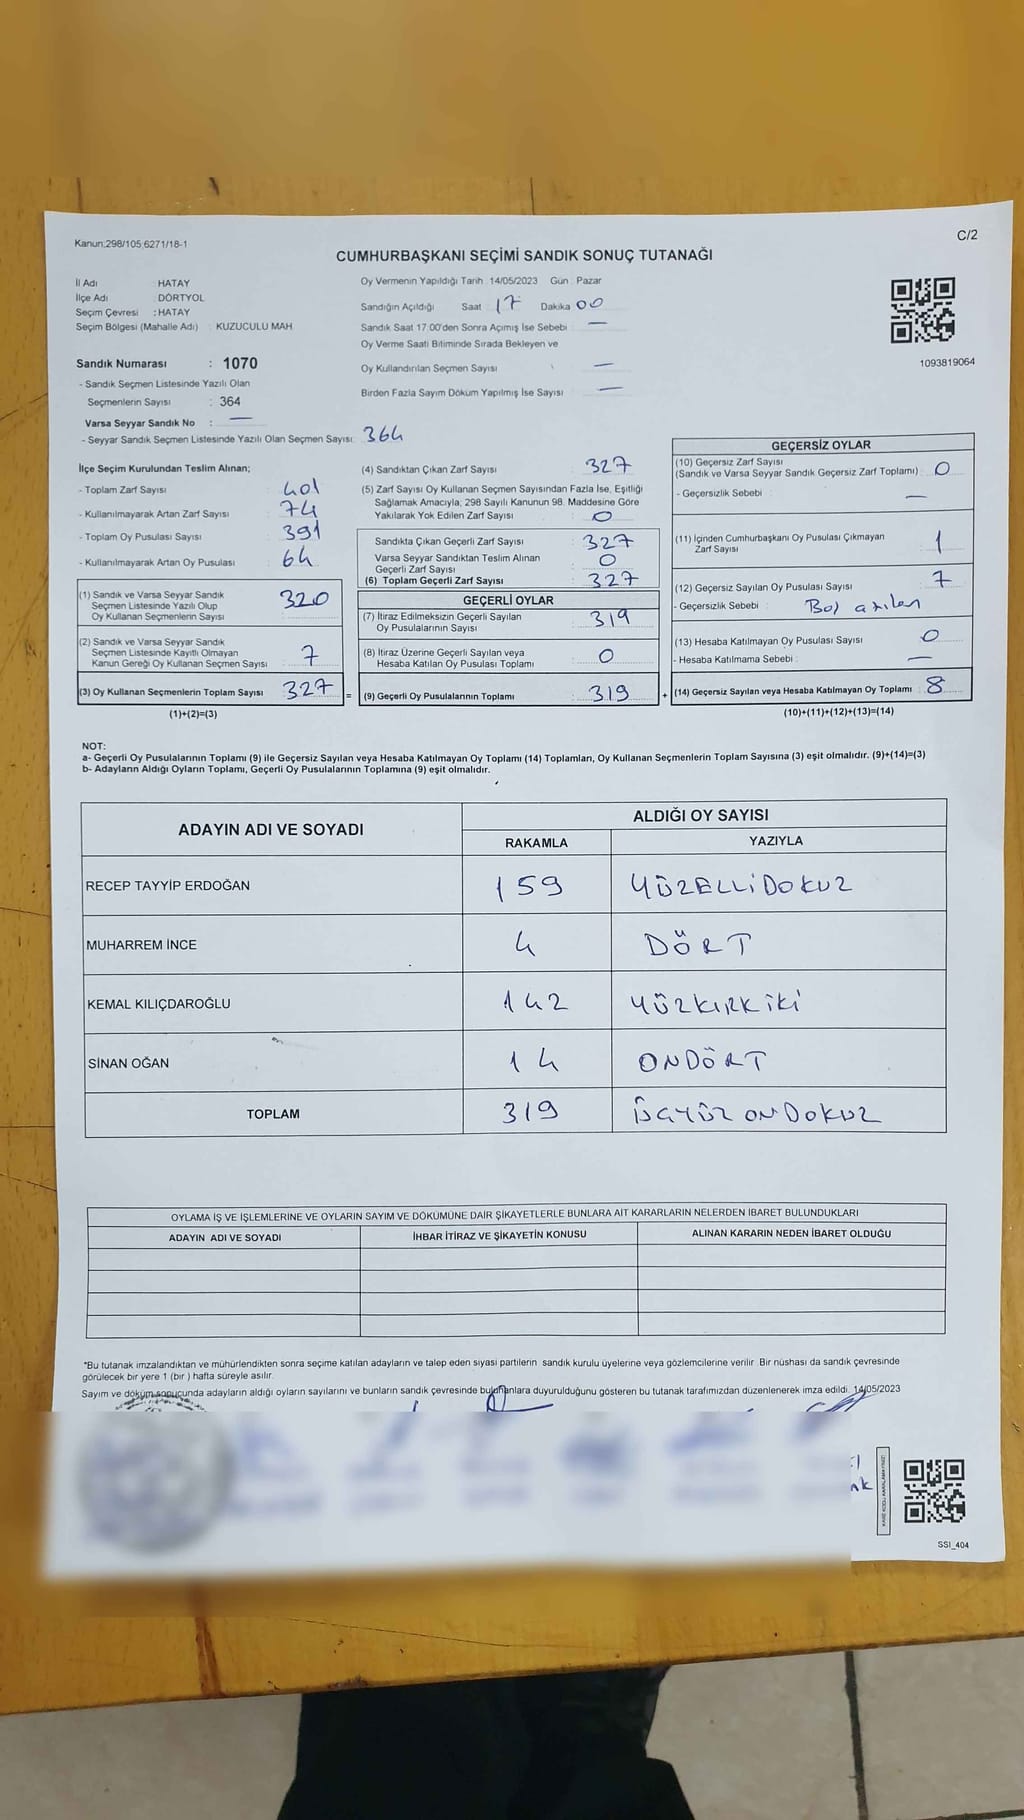 Kanun:298/105;6271/18-1
C/2
CUMHURBAŞKANI SEÇİMİ SANDIK SONUÇ TUTANAĞI
İl Adı : HATAY
İlçe Adı : DÖRTYOL
Seçim Çevresi : HATAY
Seçim Bölgesi (Mahalle Adı) : KUZUCULU MAH.
Oy Vermenin Yapıldığı Tarih : 14/05/2023 Gün : Pazar
Sandığın Açıldığı Saat 17 Dakika 00
Sandık Saat 17.00'den Sonra Açımış İse Sebebi : —
Oy Verme Saati Bitiminde Sırada Bekleyen ve
Oy Kullandırılan Seçmen Sayısı : —
Birden Fazla Sayım Döküm Yapılmış İse Sayısı : —
1093819064
Sandık Numarası : 1070
- Sandık Seçmen Listesinde Yazılı Olan
Seçmenlerin Sayısı : 364
Varsa Seyyar Sandık No : —
- Seyyar Sandık Seçmen Listesinde Yazılı Olan Seçmen Sayısı: 364
İlçe Seçim Kurulundan Teslim Alınan;
- Toplam Zarf Sayısı : 401
- Kullanılmayarak Artan Zarf Sayısı : 74
- Toplam Oy Pusulası Sayısı : 391
- Kullanılmayarak Artan Oy Pusulası : 64
(1) Sandık ve Varsa Seyyar Sandık
Seçmen Listesinde Yazılı Olup
Oy Kullanan Seçmenlerin Sayısı : 320
(2) Sandık ve Varsa Seyyar Sandık
Seçmen Listesinde Kayıtlı Olmayan
Kanun Gereği Oy Kullanan Seçmen Sayısı : 7
(3) Oy Kullanan Seçmenlerin Toplam Sayısı : 327 =
(1)+(2)=(3)
(4) Sandıktan Çıkan Zarf Sayısı : 327
(5) Zarf Sayısı Oy Kullanan Seçmen Sayısından Fazla İse, Eşitliği
Sağlamak Amacıyla, 298 Sayılı Kanunun 98. Maddesine Göre
Yakılarak Yok Edilen Zarf Sayısı : 0
Sandıkta Çıkan Geçerli Zarf Sayısı : 327
Varsa Seyyar Sandıktan Teslim Alınan
Geçerli Zarf Sayısı : 0
(6) Toplam Geçerli Zarf Sayısı : 327
GEÇERLİ OYLAR
(7) İtiraz Edilmeksizin Geçerli Sayılan
Oy Pusulalarının Sayısı : 319
(8) İtiraz Üzerine Geçerli Sayılan veya
Hesaba Katılan Oy Pusulası Toplamı : 0
(9) Geçerli Oy Pusulalarının Toplamı : 319 +
GEÇERSİZ OYLAR
(10) Geçersiz Zarf Sayısı
(Sandık ve Varsa Seyyar Sandık Geçersiz Zarf Toplamı) : 0
- Geçersizlik Sebebi : —
(11) İçinden Cumhurbaşkanı Oy Pusulası Çıkmayan
Zarf Sayısı : 1
(12) Geçersiz Sayılan Oy Pusulası Sayısı : 7
- Geçersizlik Sebebi : Boş atılan
(13) Hesaba Katılmayan Oy Pusulası Sayısı : 0
- Hesaba Katılmama Sebebi : —
(14) Geçersiz Sayılan veya Hesaba Katılmayan Oy Toplamı : 8
(10)+(11)+(12)+(13)=(14)
NOT:
a- Geçerli Oy Pusulalarının Toplamı (9) ile Geçersiz Sayılan veya Hesaba Katılmayan Oy Toplamı (14) Toplamları, Oy Kullanan Seçmenlerin Toplam Sayısına (3) eşit olmalıdır. (9)+(14)=(3)
b- Adayların Aldığı Oyların Toplamı, Geçerli Oy Pusulalarının Toplamına (9) eşit olmalıdır.
ADAYIN ADI VE SOYADI ALDIĞI OY SAYISI
RAKAMLA YAZIYLA
RECEP TAYYİP ERDOĞAN 159 YÜZELLİDOKUZ
MUHARREM İNCE 4 DÖRT
KEMAL KILIÇDAROĞLU 142 YÜZKIRKİKİ
SİNAN OĞAN 14 ONDÖRT
TOPLAM 319 ÜÇYÜZ ONDOKUZ
OYLAMA İŞ VE İŞLEMLERİNE VE OYLARIN SAYIM VE DÖKÜMÜNE DAİR ŞİKAYETLERLE BUNLARA AİT KARARLARIN NELERDEN İBARET BULUNDUKLARI
ADAYIN ADI VE SOYADI İHBAR İTİRAZ VE ŞİKAYETİN KONUSU ALINAN KARARIN NEDEN İBARET OLDUĞU
*Bu tutanak imzalandıktan ve mühürlendikten sonra seçime katılan adayların ve talep eden siyasi partilerin sandık kurulu üyelerine veya gözlemcilerine verilir. Bir nüshası da sandık çevresinde
görülecek bir yere 1 (bir ) hafta süreyle asılır.
Sayım ve döküm sonucunda adayların aldığı oyların sayılarını ve bunların sandık çevresinde bulunanlara duyurulduğunu gösteren bu tutanak tarafımızdan düzenlenerek imza edildi. 14/05/2023
SSI_404